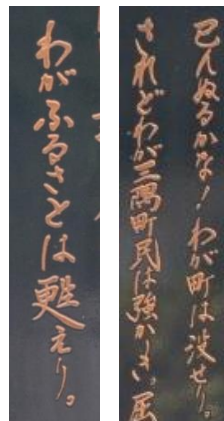 已んぬるかな!わが町は没せり。
されどわが三隅町民は強かりき。屈
わがふるさとは甦えり。